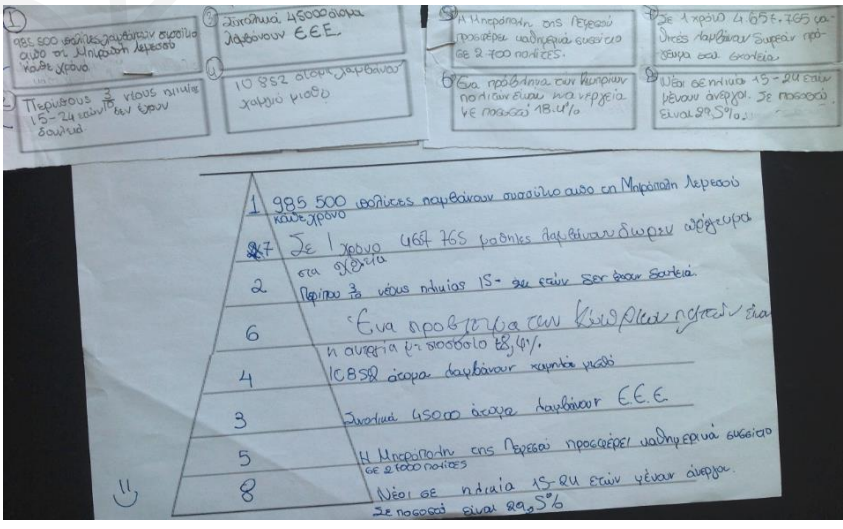 1
985 500 πολίτες λαμβάνουν συσσίτιο
από τη Μητρόπολη Λεμεσού
κάθε χρόνο
2 Περίπου 3/10 νέους ηλικίας
15-24 ετών δεν έχουν
δουλειά
3
Συνολικά 45000 άτομα
λαμβάνουν Ε.Ε.Ε.
4
10 852 άτομα λαμβάνουν
χαμηλό μισθό
5 Η Μητρόπολη της Λεμεσού
προσφέρει καθημερινά συσσίτιο
σε 2 700 πολίτες.
6 Ένα πρόβλημα των Κυπρίων
πολιτών είναι η ανεργεία
με ποσοστό 18.4%
7 Σε 1 χρόνο 4 657.765 μα-
θητές λαμβάνουν δωρεάν πρό-
γευμα στα σχολεία.
8 Νέοι σε ηλικία 15-24 ετών
μένουν άνεργοι. Σε ποσοστό
είναι 29,5%.
1 985 500 πολίτες λαμβάνουν συσσίτιο από τη Μητρόπολη Λεμεσού
κάθε χρόνο
7 Σε 1 χρόνο 467 765 μαθητές λαμβάνουν δωρεάν πρόγευμα
στα σχολεία
2 Περίπου 3/10 νέους ηλικίας 15- 24 ετών δεν έχουν δουλειά.
6 Ένα πρόβλημα των Κυπρίων πολιτών είναι
η ανεργία με ποσοστό 18,4%.
4 10852 άτομα λαμβάνουν χαμηλό μισθό
3 Συνολικά 45000 άτομα λαμβάνουν Ε.Ε.Ε
5 Η Μητρόπολη της Λεμεσού προσφέρει καθημερινά συσσίτιο
σε 27000 πολίτες
8 Νέοι σε ηλικία 15-24 ετών μένουν άνεργοι.
Σε ποσοστό είναι 29,5%